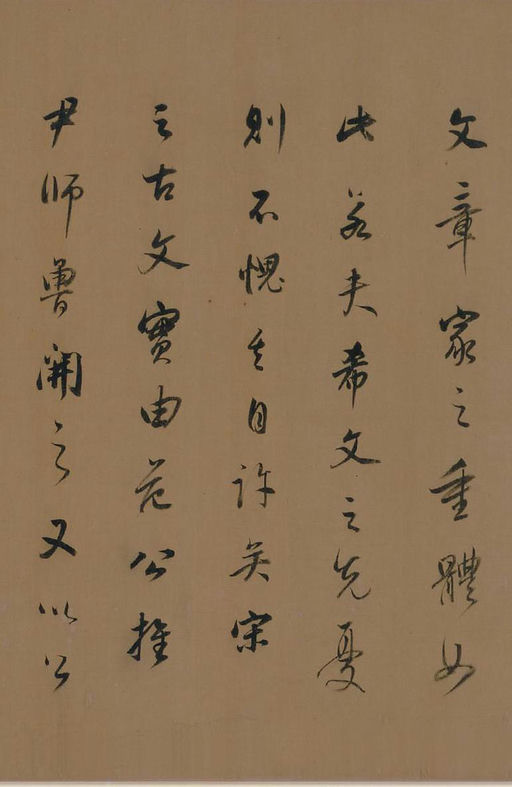 文章家之重體如
此若夫希文之先憂
則不愧其自許矣宋
之古文實由范公推
尹師魯開之又以公